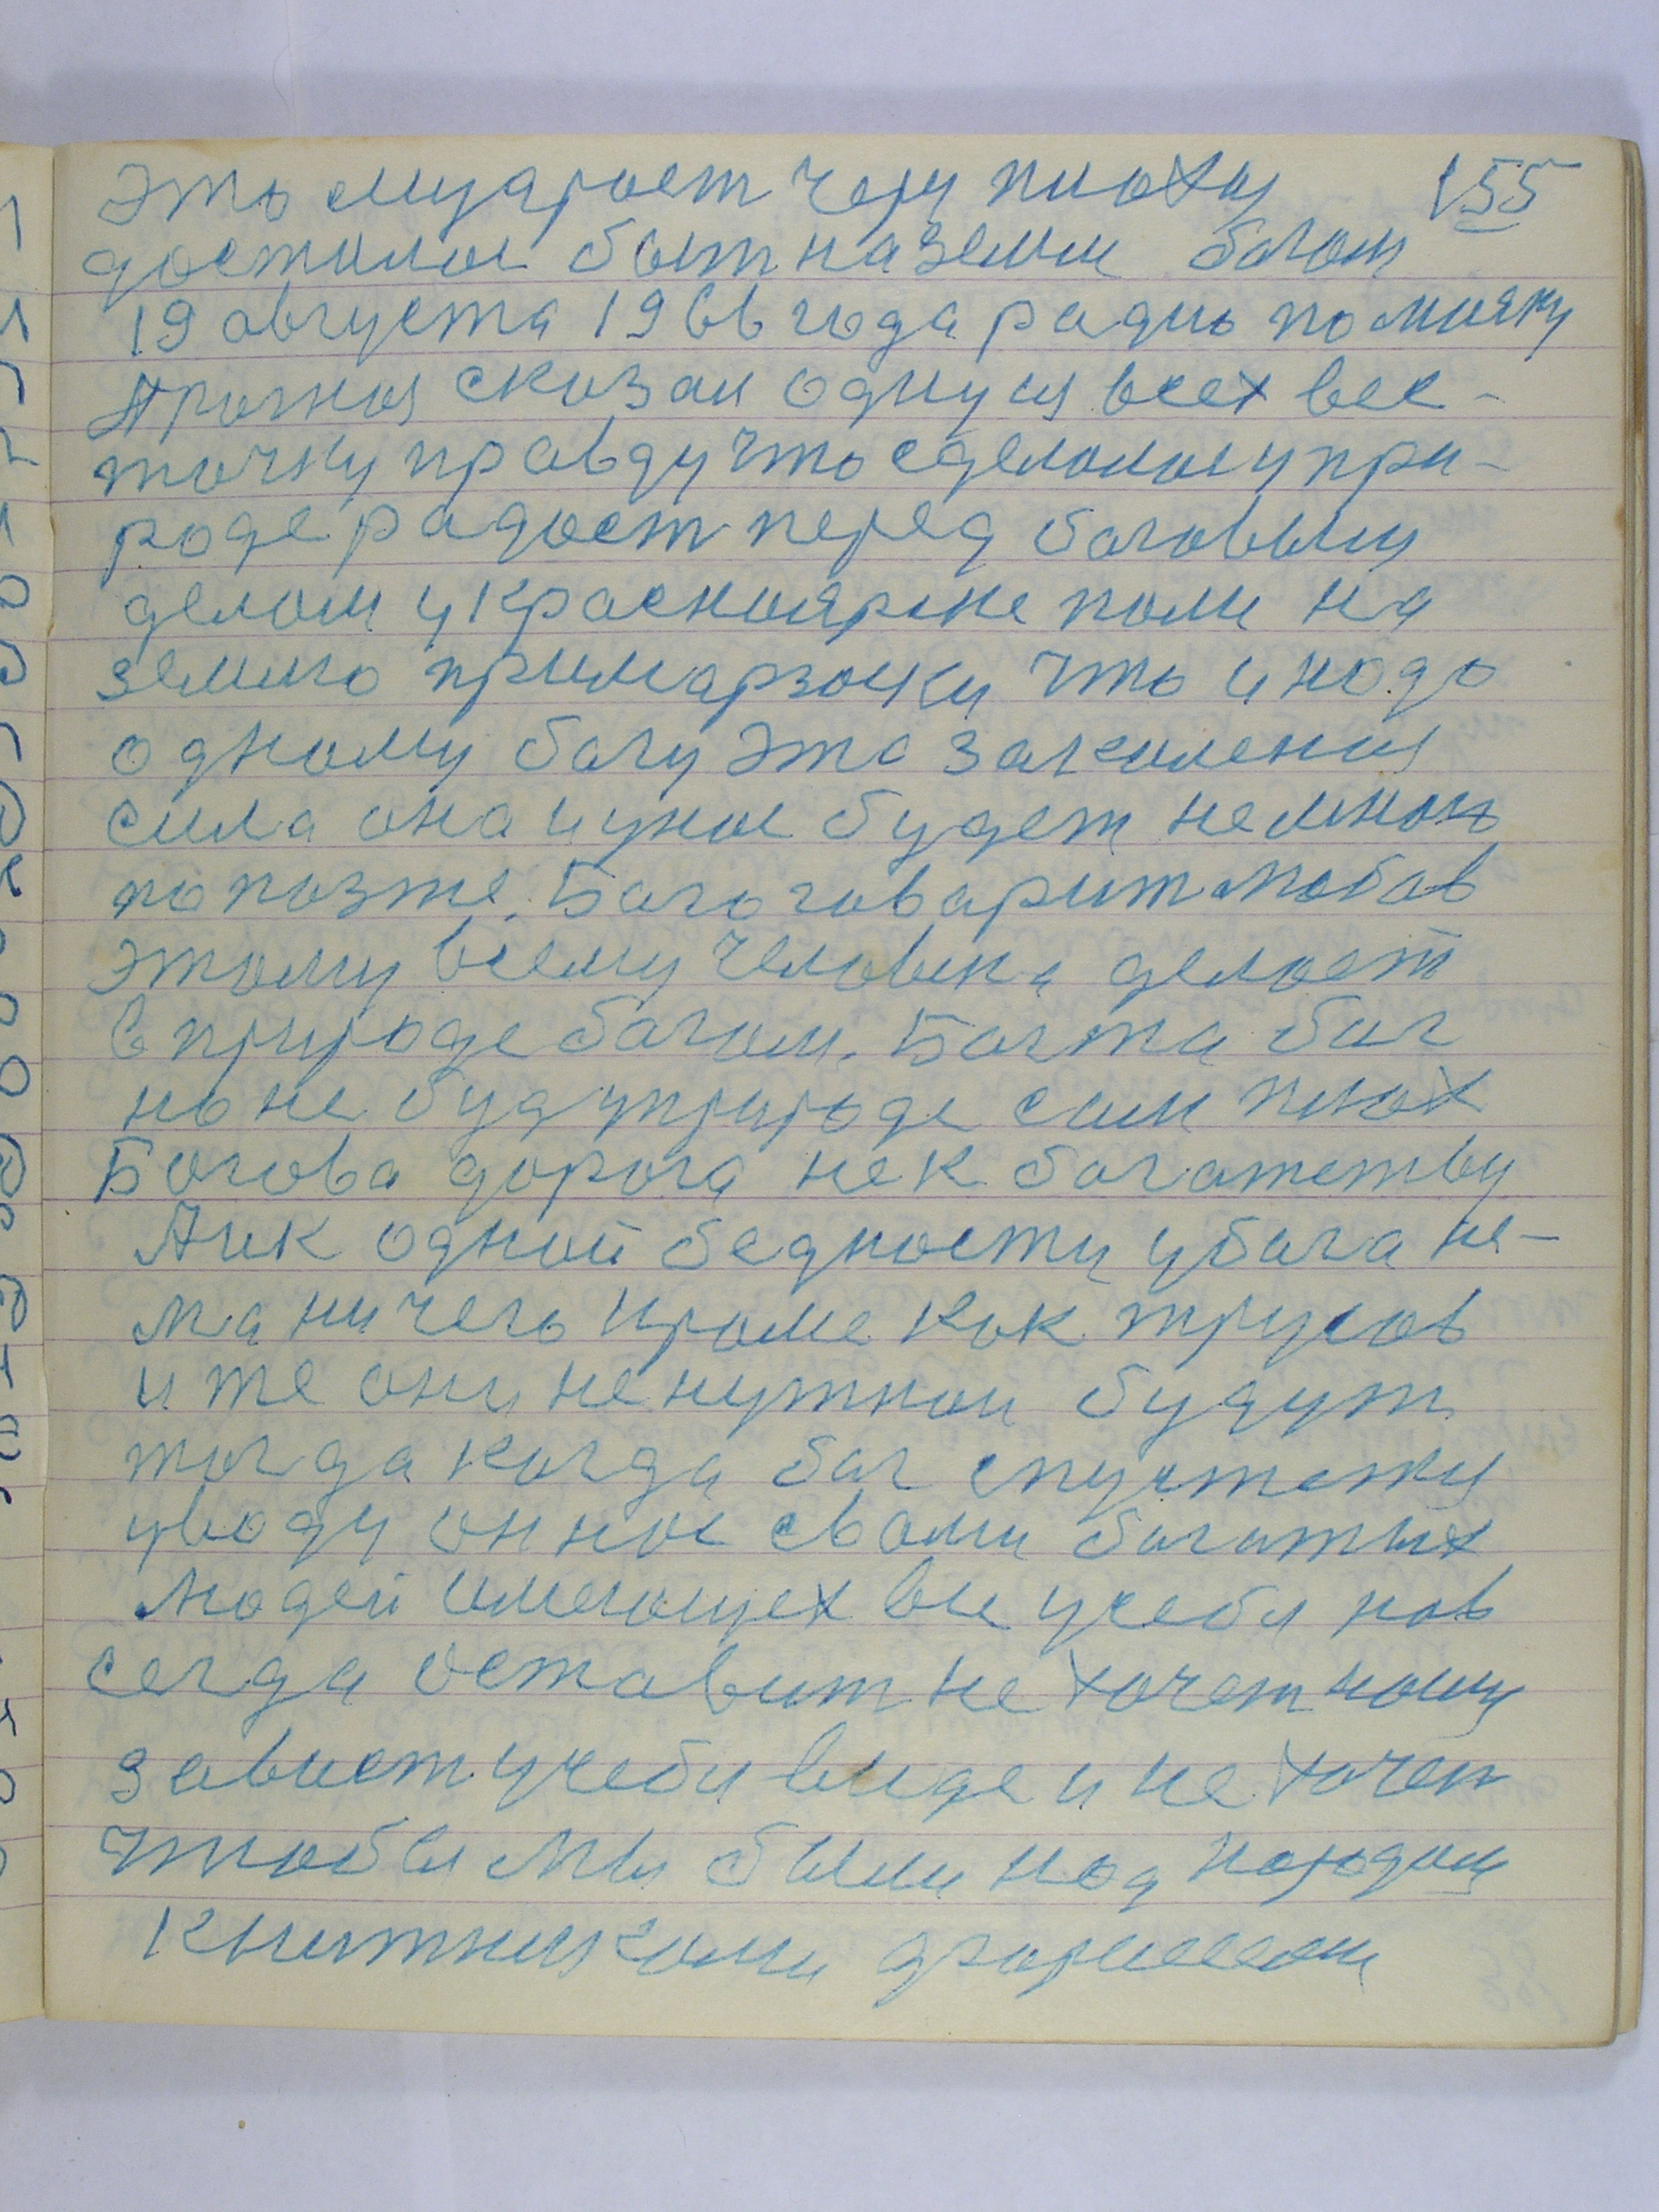 155
это мудрост чему плоху
досталос быт на земли богом
19 августа 1966 года радио по маяку
Прогноз сказал однуия всех вес-
точку правду что сделалос у при-
роде радост перед боговым
делом у Красноярске пали на
землю прималзоки что и надо
одному богу это закаления
сила она и у нас будет немного
попозже. Бого говарит любов
этому всему человека делает
в природе богом. Бог та бог
но не буд у природе сам плох
Богова дорога не к богатству
А и к одной бедности у бога не-
ма ничего кроме как трусов
и те они не нужнои будут
тогда когда бог спустяжу
уводу он нас свами богатых
людей имеющех все у себя нав
сегда оставит не хочет нашу
завист у себя виде и не хочет
чтобы мы были над народом
книжниками фарисеем